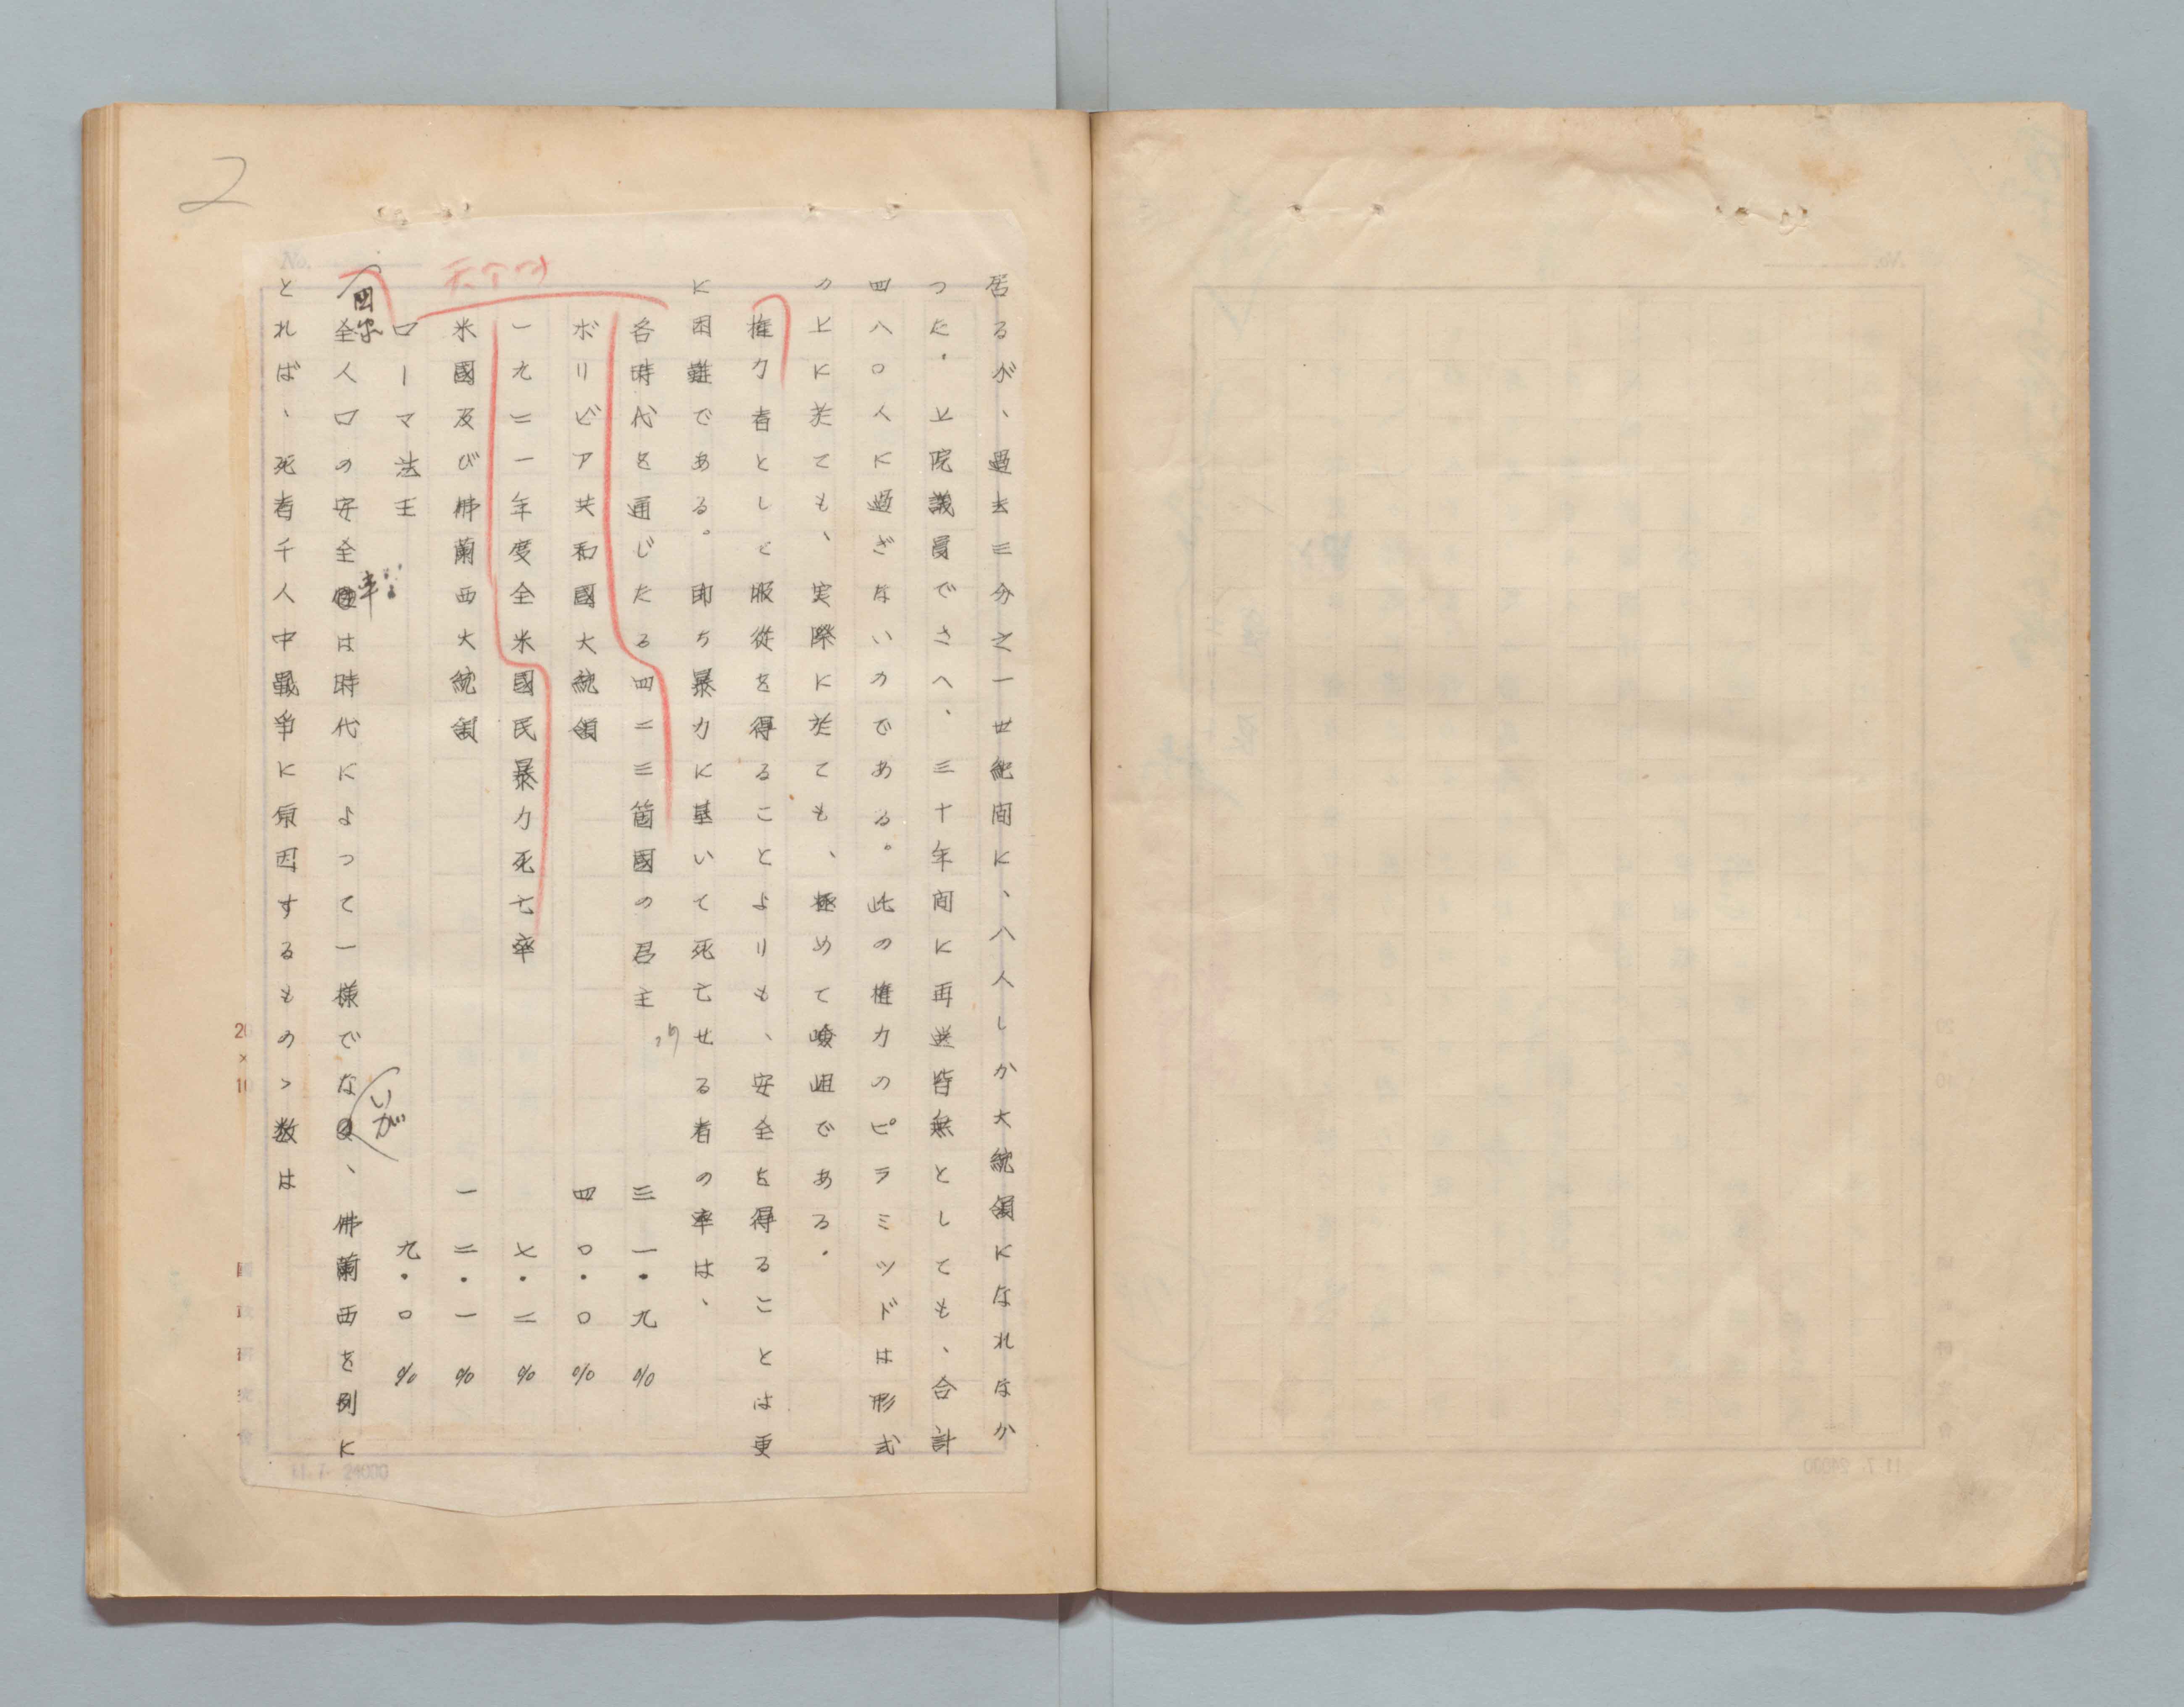 居るが、過去三分之一世紀間に、八人しか大統領になれなか
つた.　上院議員でさへ、三十年間に再選皆無としても、合計
四八〇人に過ぎないのである。此の権力のピラミツドは形式
の上に於ても、実際に於ても、極めて嶮岨である.
権力者として服従を得ることよりも、安全を得ることは更
に困難である。即ち暴力に基いて死亡せる者の率は、
各時代を通じたる四二三箇國の君主　三一.九%
ボリビア共和國大統領　四〇.〇%
一九二一年度全米國民暴力死亡率　七.二%
米國及び佛蘭西大統領　一二.一%
ローマ法王　九.〇%
全人口の安全率は時代によつて一様でないが、佛蘭西を例に
とれば、死者千人中戰争に原因するものゝ数は
2
No.
11. 7. 24000